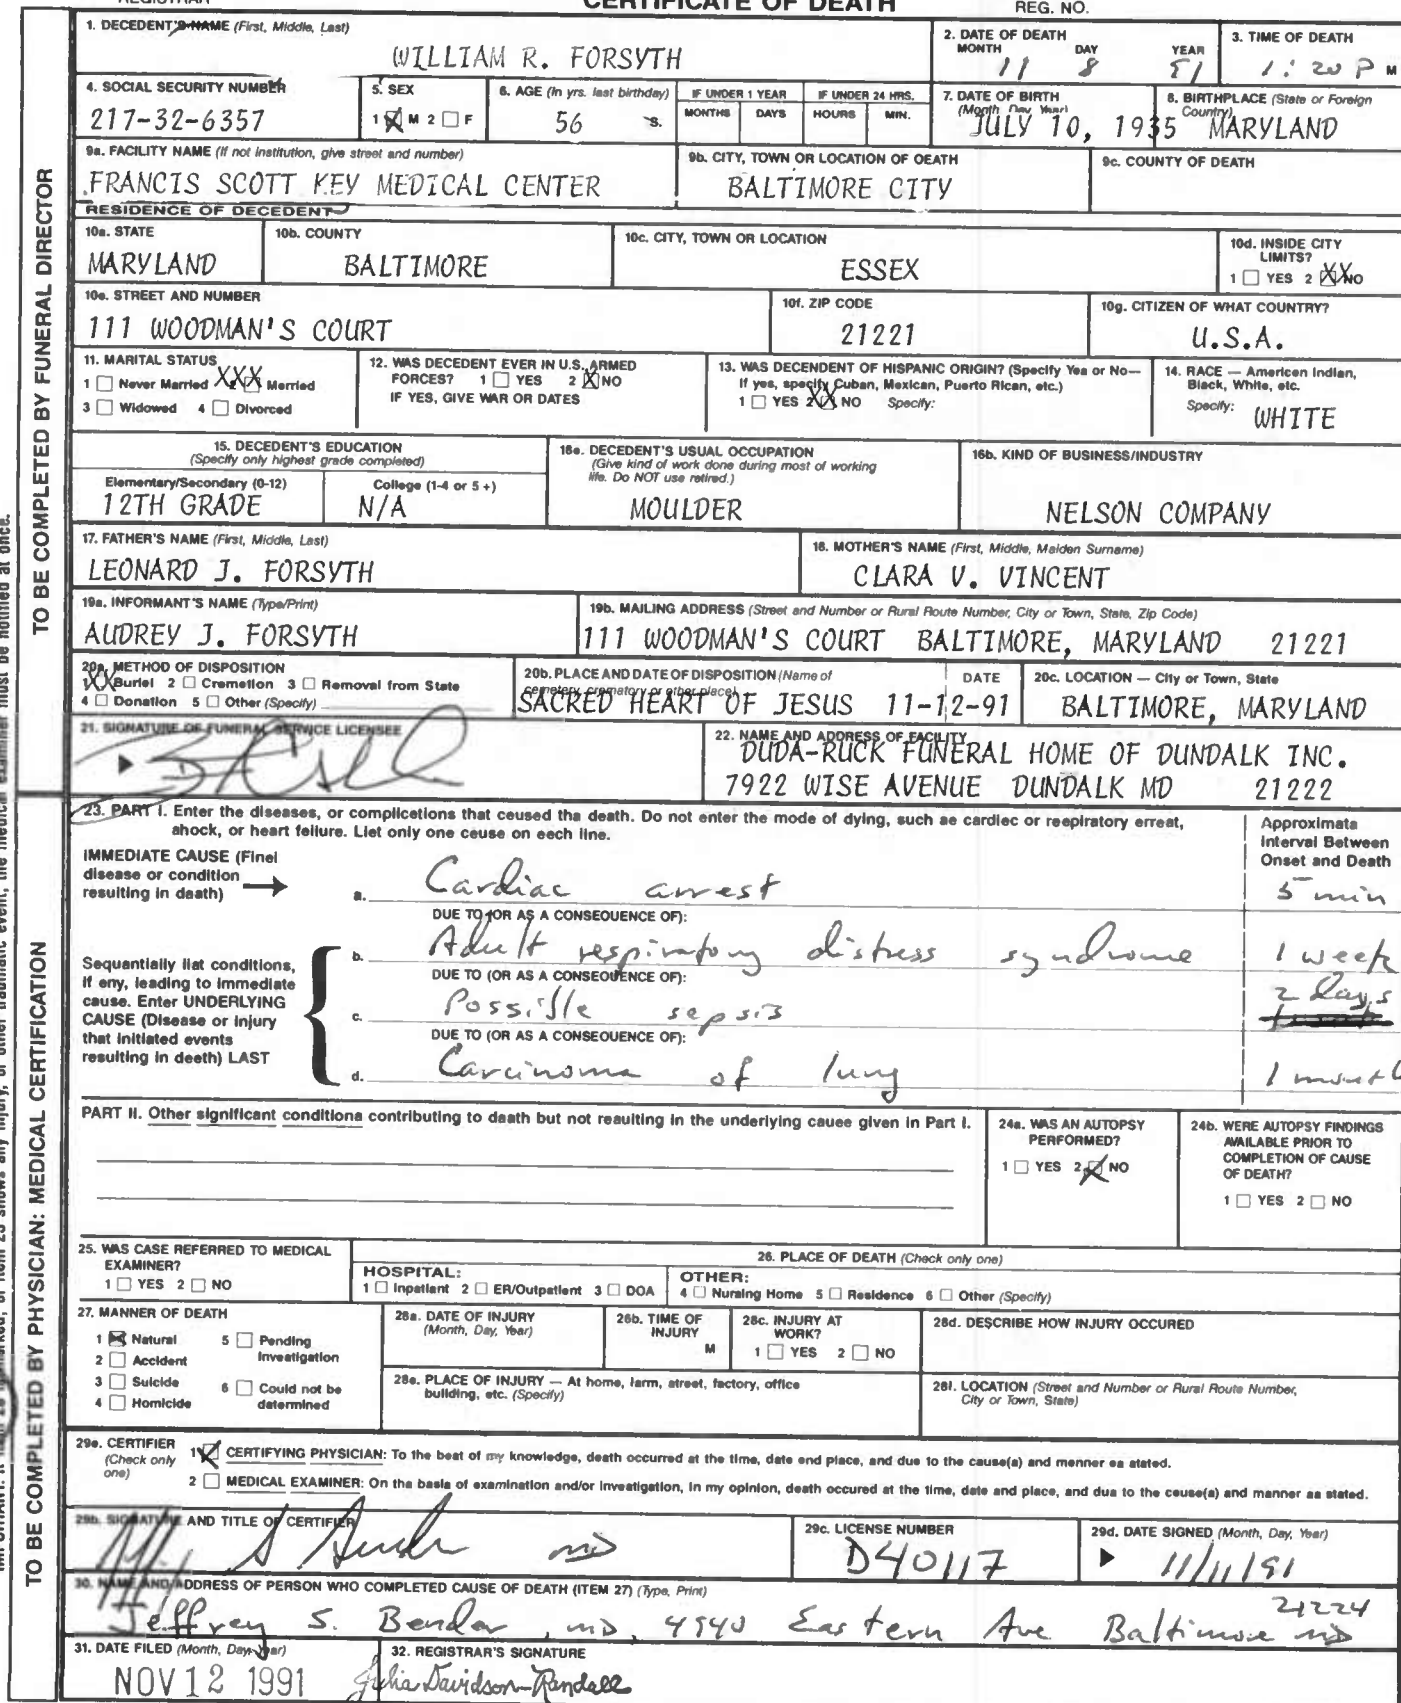 REGISTRAR
CERTIFICATE OF DEATH
REG. NO.
1. DECEDENT'S NAME (First, Middle, Last)
WILLIAM R. FORSYTH
2. DATE OF DEATH
MONTH DAY YEAR
11 8 91
3. TIME OF DEATH
1:20 P M
4. SOCIAL SECURITY NUMBER
217-32-6357
5. SEX
1 X M 2 F
6. AGE (In yrs. last birthday)
56
IF UNDER 1 YEAR
MONTHS DAYS
IF UNDER 24 HRS.
HOURS MIN.
7. DATE OF BIRTH
(Month Day Year)
JULY 10, 1935
8. BIRTHPLACE (State or Foreign
Country)
MARYLAND
9a. FACILITY NAME (If not institution, give street and number)
FRANCIS SCOTT KEY MEDICAL CENTER
9b. CITY, TOWN OR LOCATION OF DEATH
BALTIMORE CITY
9c. COUNTY OF DEATH
RESIDENCE OF DECEDENT
10a. STATE
MARYLAND
10b. COUNTY
BALTIMORE
10c. CITY, TOWN OR LOCATION
ESSEX
10d. INSIDE CITY
LIMITS?
1 YES 2 XX NO
10e. STREET AND NUMBER
111 WOODMAN'S COURT
10f. ZIP CODE
21221
10g. CITIZEN OF WHAT COUNTRY?
U.S.A.
11. MARITAL STATUS
1 Never Married XXX 2 Married
3 Widowed 4 Divorced
12. WAS DECEDENT EVER IN U.S. ARMED
FORCES? 1 YES 2 X NO
IF YES, GIVE WAR OR DATES
13. WAS DECENDENT OF HISPANIC ORIGIN? (Specify Yes or No—
If yes, specify Cuban, Mexican, Puerto Rican, etc.)
1 YES 2 XX NO Specify:
14. RACE — American Indian,
Black, White, etc.
Specify: WHITE
15. DECEDENT'S EDUCATION
(Specify only highest grade completed)
Elementary/Secondary (0-12)
12TH GRADE
College (1-4 or 5 +)
N/A
16a. DECEDENT'S USUAL OCCUPATION
(Give kind of work done during most of working
life. Do NOT use retired.)
MOULDER
16b. KIND OF BUSINESS/INDUSTRY
NELSON COMPANY
17. FATHER'S NAME (First, Middle, Last)
LEONARD J. FORSYTH
18. MOTHER'S NAME (First, Middle, Maiden Surname)
CLARA V. VINCENT
19a. INFORMANT'S NAME (Type/Print)
AUDREY J. FORSYTH
19b. MAILING ADDRESS (Street and Number or Rural Route Number, City or Town, State, Zip Code)
111 WOODMAN'S COURT BALTIMORE, MARYLAND 21221
20a. METHOD OF DISPOSITION
1 XX Burial 2 Cremation 3 Removal from State
4 Donation 5 Other (Specify)
20b. PLACE AND DATE OF DISPOSITION (Name of
cemetery, crematory or other place)
DATE
SACRED HEART OF JESUS 11-12-91
20c. LOCATION — City or Town, State
BALTIMORE, MARYLAND
21. SIGNATURE OF FUNERAL SERVICE LICENSEE
22. NAME AND ADDRESS OF FACILITY
DUDA-RUCK FUNERAL HOME OF DUNDALK INC.
7922 WISE AVENUE DUNDALK MD 21222
TO BE COMPLETED BY FUNERAL DIRECTOR
23. PART I. Enter the diseases, or complications that caused the death. Do not enter the mode of dying, such as cardiac or respiratory arrest,
shock, or heart failure. List only one cause on each line.
Approximate
Interval Between
Onset and Death
IMMEDIATE CAUSE (Final
disease or condition
resulting in death)
a. Cardiac arrest 5 min
DUE TO (OR AS A CONSEQUENCE OF):
b. Adult respiratory distress syndrome 1 week
DUE TO (OR AS A CONSEQUENCE OF):
Sequentially list conditions,
if any, leading to immediate
cause. Enter UNDERLYING
CAUSE (Disease or injury
that initiated events
resulting in death) LAST
c. Possible sepsis 2 days
DUE TO (OR AS A CONSEQUENCE OF):
d. Carcinoma of lung 1 month
PART II. Other significant conditions contributing to death but not resulting in the underlying cause given in Part I.
24a. WAS AN AUTOPSY
PERFORMED?
1 YES 2 X NO
24b. WERE AUTOPSY FINDINGS
AVAILABLE PRIOR TO
COMPLETION OF CAUSE
OF DEATH?
1 YES 2 NO
25. WAS CASE REFERRED TO MEDICAL
EXAMINER?
1 YES 2 NO
26. PLACE OF DEATH (Check only one)
HOSPITAL:
1 Inpatient 2 ER/Outpatient 3 DOA
OTHER:
4 Nursing Home 5 Residence 6 Other (Specify)
27. MANNER OF DEATH
1 X Natural 5 Pending
Investigation
2 Accident
3 Suicide 6 Could not be
determined
4 Homicide
28a. DATE OF INJURY
(Month, Day, Year)
28b. TIME OF
INJURY
M
28c. INJURY AT
WORK?
1 YES 2 NO
28d. DESCRIBE HOW INJURY OCCURED
28e. PLACE OF INJURY — At home, farm, street, factory, office
building, etc. (Specify)
28f. LOCATION (Street and Number or Rural Route Number,
City or Town, State)
29a. CERTIFIER
(Check only
one)
1 X CERTIFYING PHYSICIAN: To the best of my knowledge, death occurred at the time, date and place, and due to the cause(s) and manner as stated.
2 MEDICAL EXAMINER: On the basis of examination and/or investigation, in my opinion, death occured at the time, date and place, and due to the cause(s) and manner as stated.
29b. SIGNATURE AND TITLE OF CERTIFIER
MD
29c. LICENSE NUMBER
D40117
29d. DATE SIGNED (Month, Day, Year)
11/11/91
30. NAME AND ADDRESS OF PERSON WHO COMPLETED CAUSE OF DEATH (ITEM 27) (Type, Print)
Jeffrey S. Bender, MD, 4940 Eastern Ave Baltimore MD 21224
31. DATE FILED (Month, Day, Year)
NOV 12 1991
32. REGISTRAR'S SIGNATURE
Julia Davidson-Randall
TO BE COMPLETED BY PHYSICIAN: MEDICAL CERTIFICATION